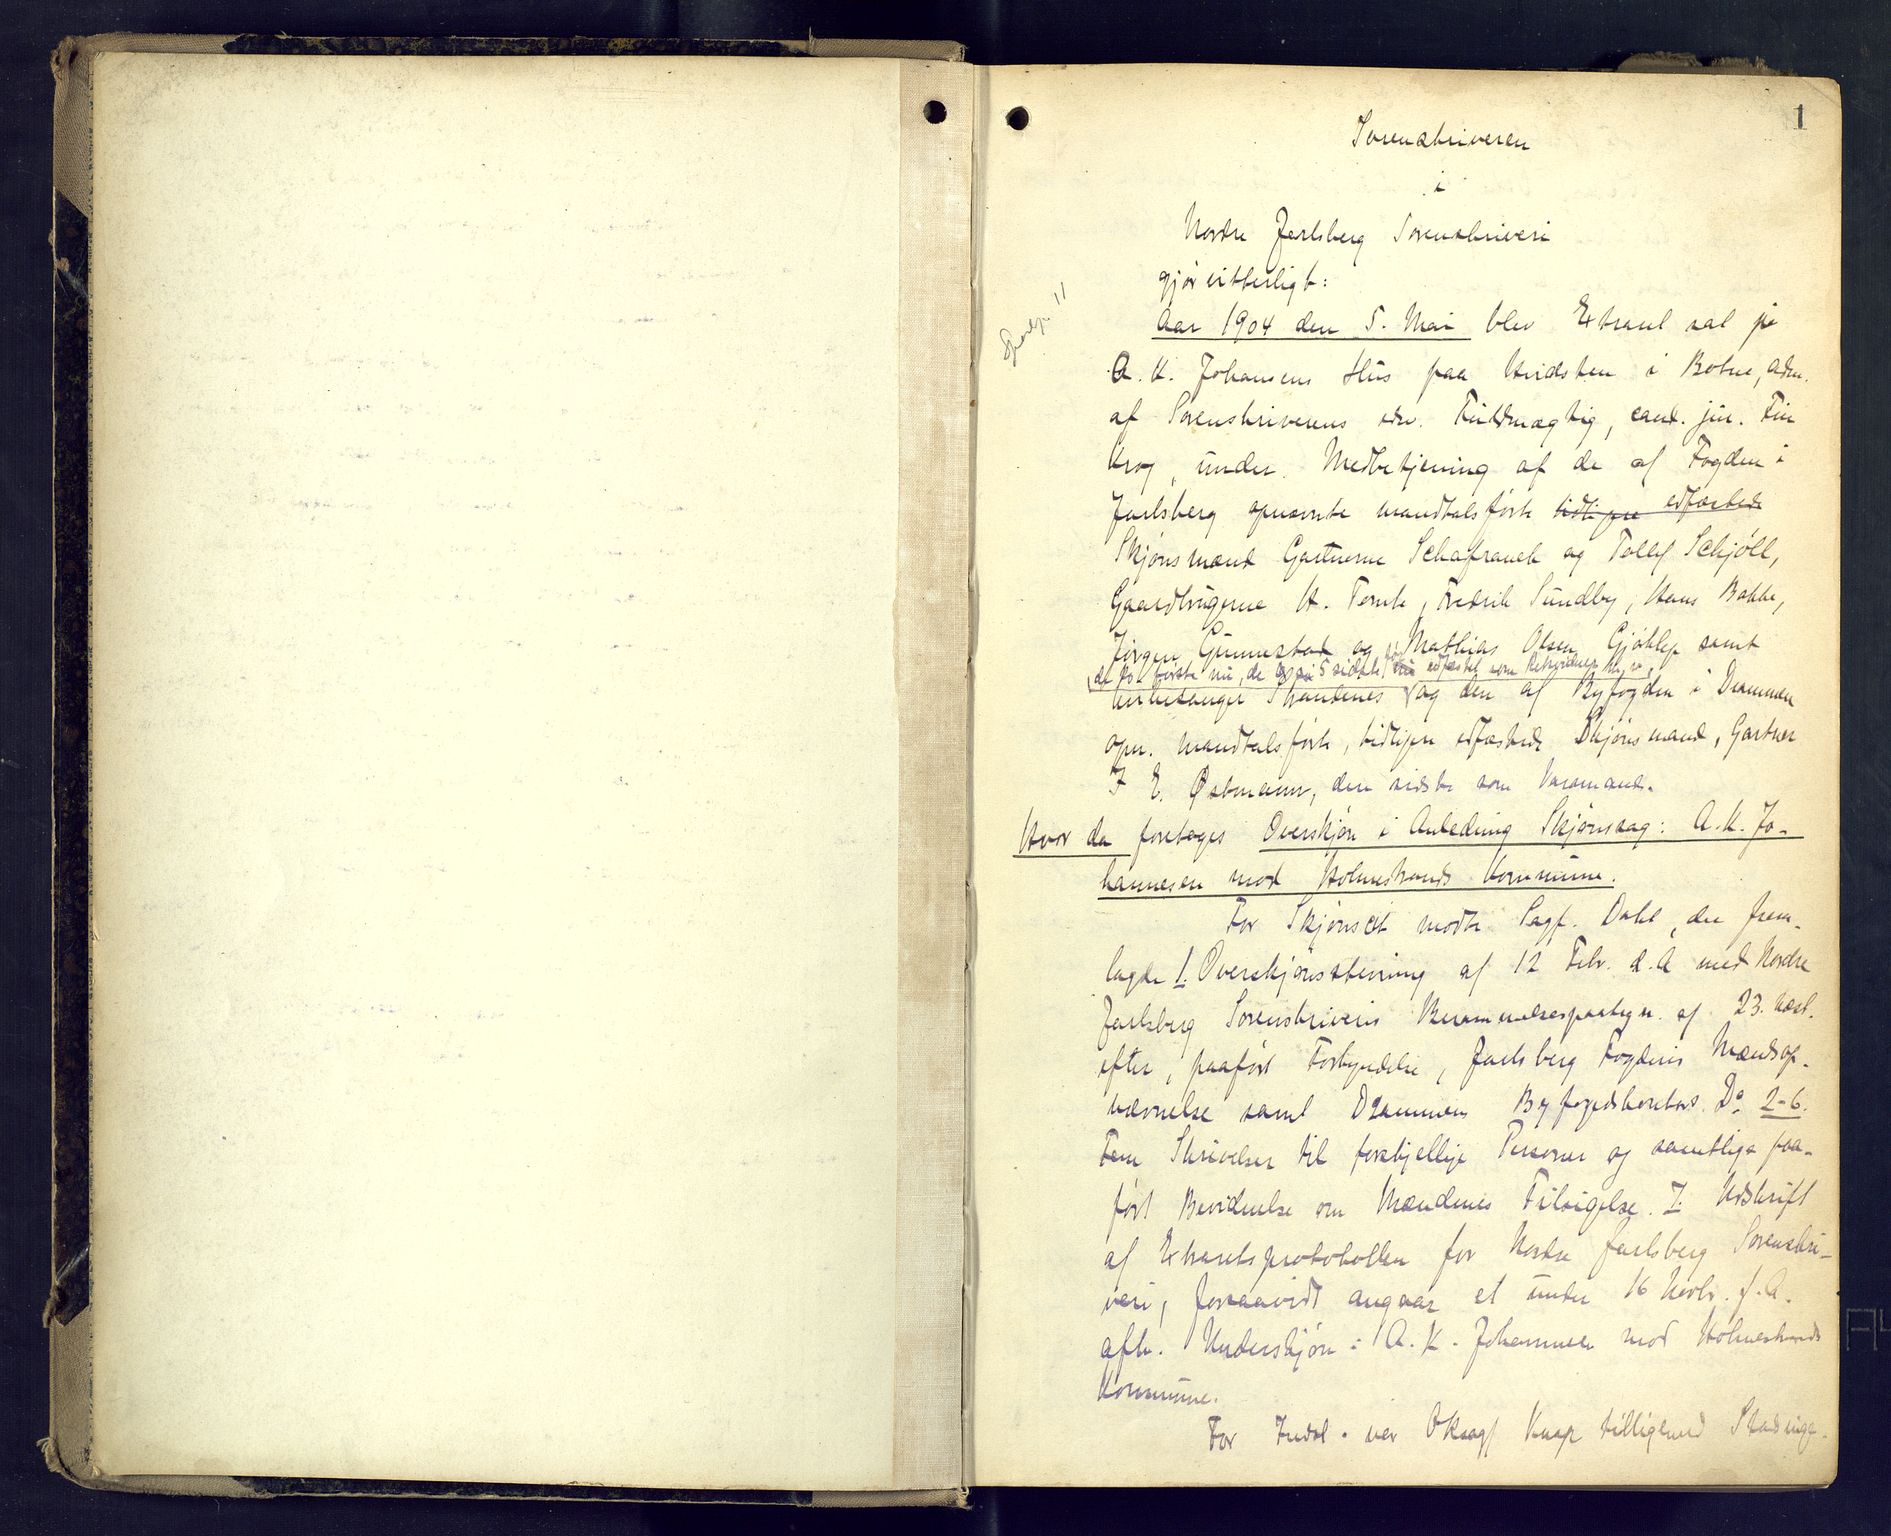 1
Sorenskriveren
i
Nordre Jarlsberg Sorenskriveri
gjør vitterligt:
Aar 1904 den 5. Mai blev Extraret sat på
A. K. Johansens Hus paa Hvidsten i Botne, adm.
af Sorenskriverens edsv. Fuldmægtig, cand. jur. Finn
Krog, under Medbetjening af de af Fogden i
Jarlsberg opnævnte mandtalsførte tidligere edfæstede
Skjønsmænd Gartnerne Schafranek og Tollef Schjøll,
Gaardbrugerne H. Tomte, Fredrik Sundby, Hans Bakke,
Jørgen Gunnestad og Mathias Olsen Gjøklep samt
de to første nu, de 5 sidste edfæstet som
Kirkesanger Strandenes og den af Byfogden i Drammen
opn. mandtalsførte, tidligere edfæstede Skjønsmand, Gartner
F. E. Østmann, den sidste som Varamand.
Hvor da foretoges Overskjøn i Anledning Skjønssag: A. K. Jo-
hannesen mod Holmestrands Kommune.
For Skjønscit. mødte Sagf. Dahl, der frem-
lagde 1. Overskjønsstevning af 12 Febr. d. A. med Nordre
Jarlsberg Sorenskriveris Berammelsespaategn. af 23. næst-
efter, paaført Forkyndelse, Jarlsberg Fogderis Mændsop-
nævnelse samt Drammens Byfogedkontors Do 2-6.
Fem Skrivelser til forskjellige Personer og samtlige paa-
ført Bevidnelse om Mændenes Tilsigelse. 7. Udskrift
af Extraretsprotokollen for Nordre Jarlsberg Sorenskri-
veri, forsaavidt angaar et under 16 Novbr. f. A.
afh. Underskjøn: A. K. Johannesen mod Holmestrands
Kommune.
For Indst. var Oksagf. Knap tilligemed Stadsinge-